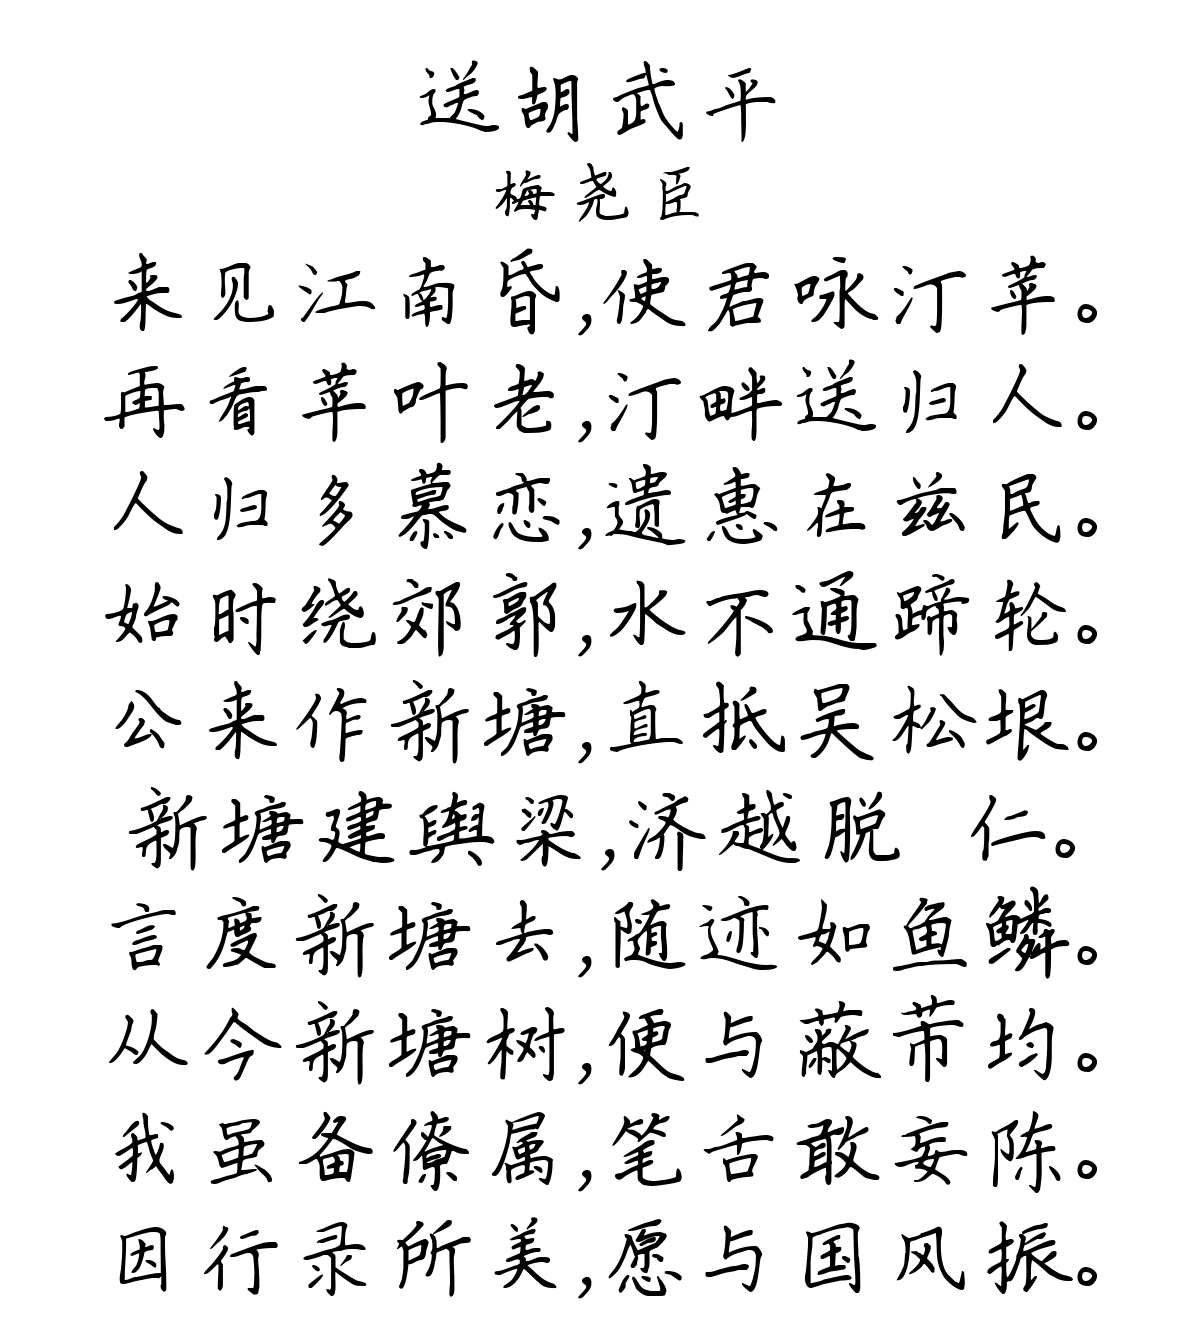 送胡武平
梅尧臣
来见江南昏,使君咏汀苹。
再看苹叶老,汀畔送归人。
人归多慕恋,遗惠在兹民。
始时绕郊郭,水不通蹄轮。
公来作新塘,直抵吴松垠。
新塘建舆梁,济越脱 仁。
言度新塘去,随迹如鱼鳞。
从今新塘树,便与蔽芾均。
我虽备僚属,笔舌敢妄陈。
因行录所美,愿与国风振。